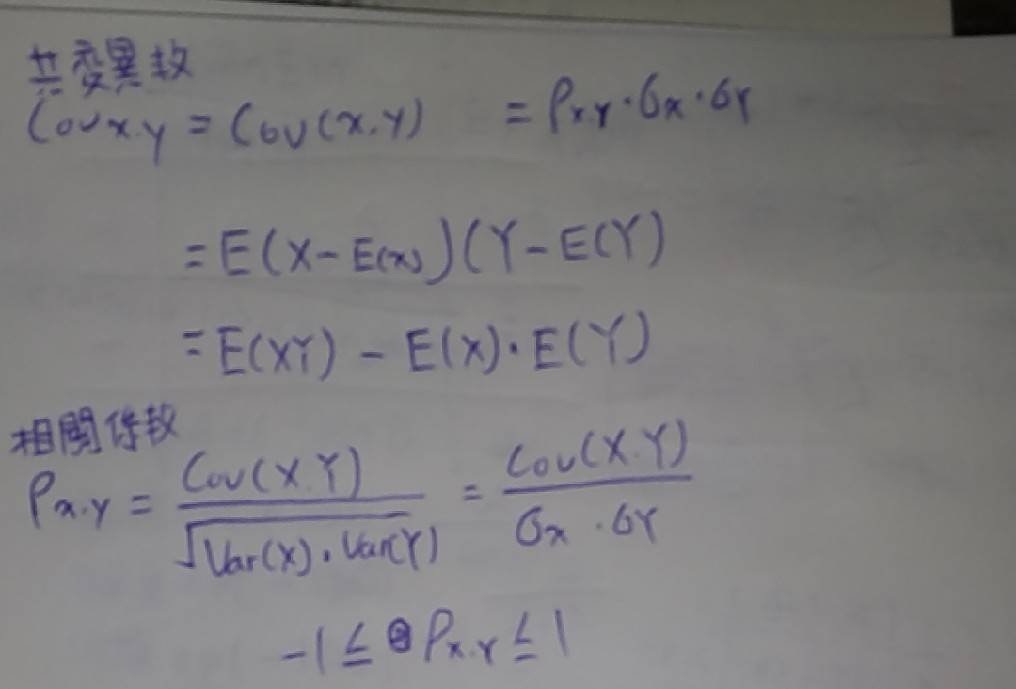 共變異數
Cov x.y = Cov(x.y) = ρx.y · σx · σY
= E(X - E(x))(Y - E(Y)
= E(XY) - E(X) · E(Y)
相關係數
ρx.y = Cov(X.Y) / √Var(X) · Var(Y) = Cov(X.Y) / σx · σY
-1 ≤ ρx.Y ≤ 1